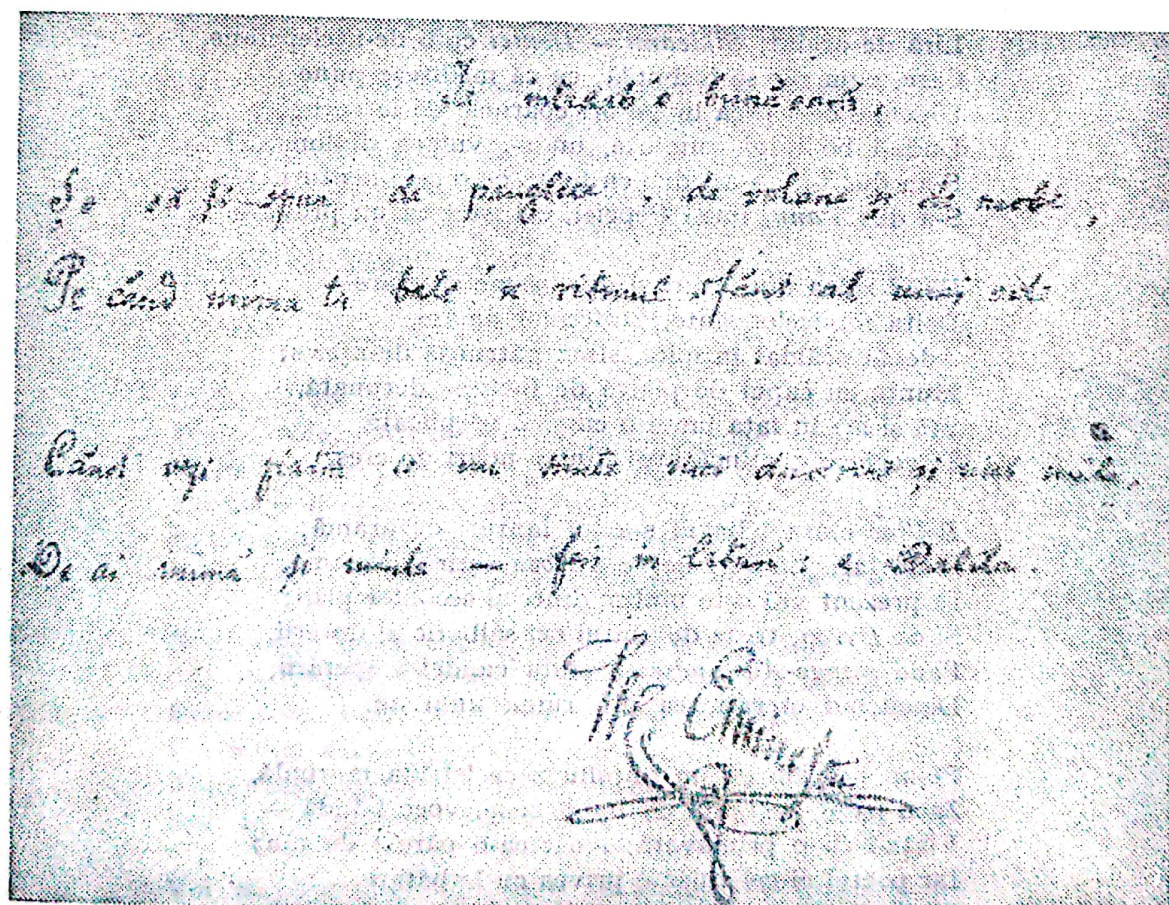 bunăoară,
de panglice, de volane și de mode,
Pe când inima ta bate 'n ritmul sfânt al unei ode
Când vezi piatra ce nu simte nici durerea și nici mila.
De ai inimă și minte — feri în lături: e Dalila.
M. Eminescu